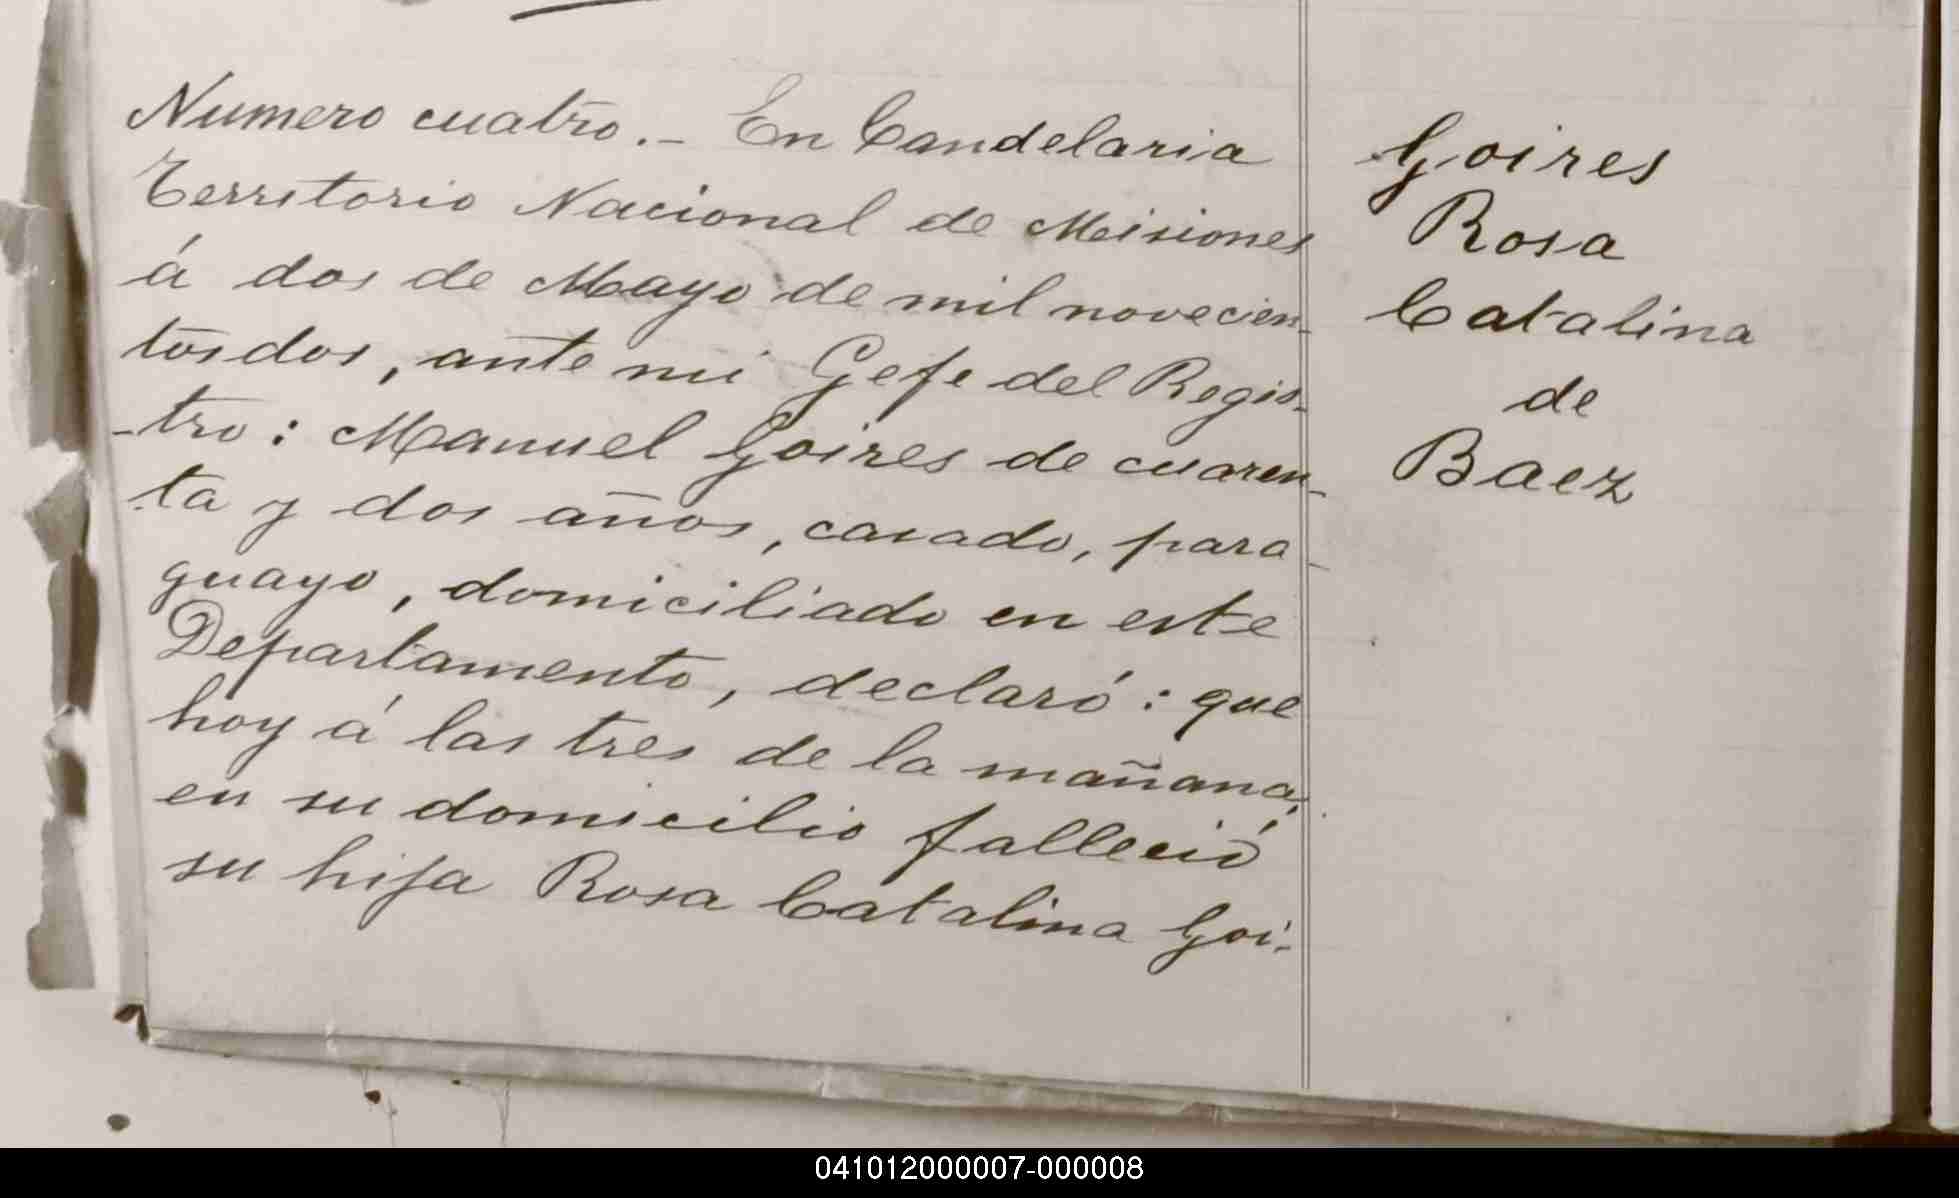 Numero cuatro.- En Candelaria
Territorio Nacional de Misiones
á dos de Mayo de mil novecien-
tos dos, ante mi Gefe del Regis-
-tro: Manuel Goires de cuaren-
ta y dos años, casado, para-
guayo, domiciliado en este
Departamento, declaró: que
hoy á las tres de la mañana,
en su domicilio falleció
su hija Rosa Catalina Goi-
Goires
Rosa
Catalina
de
Baez
041012000007-000008